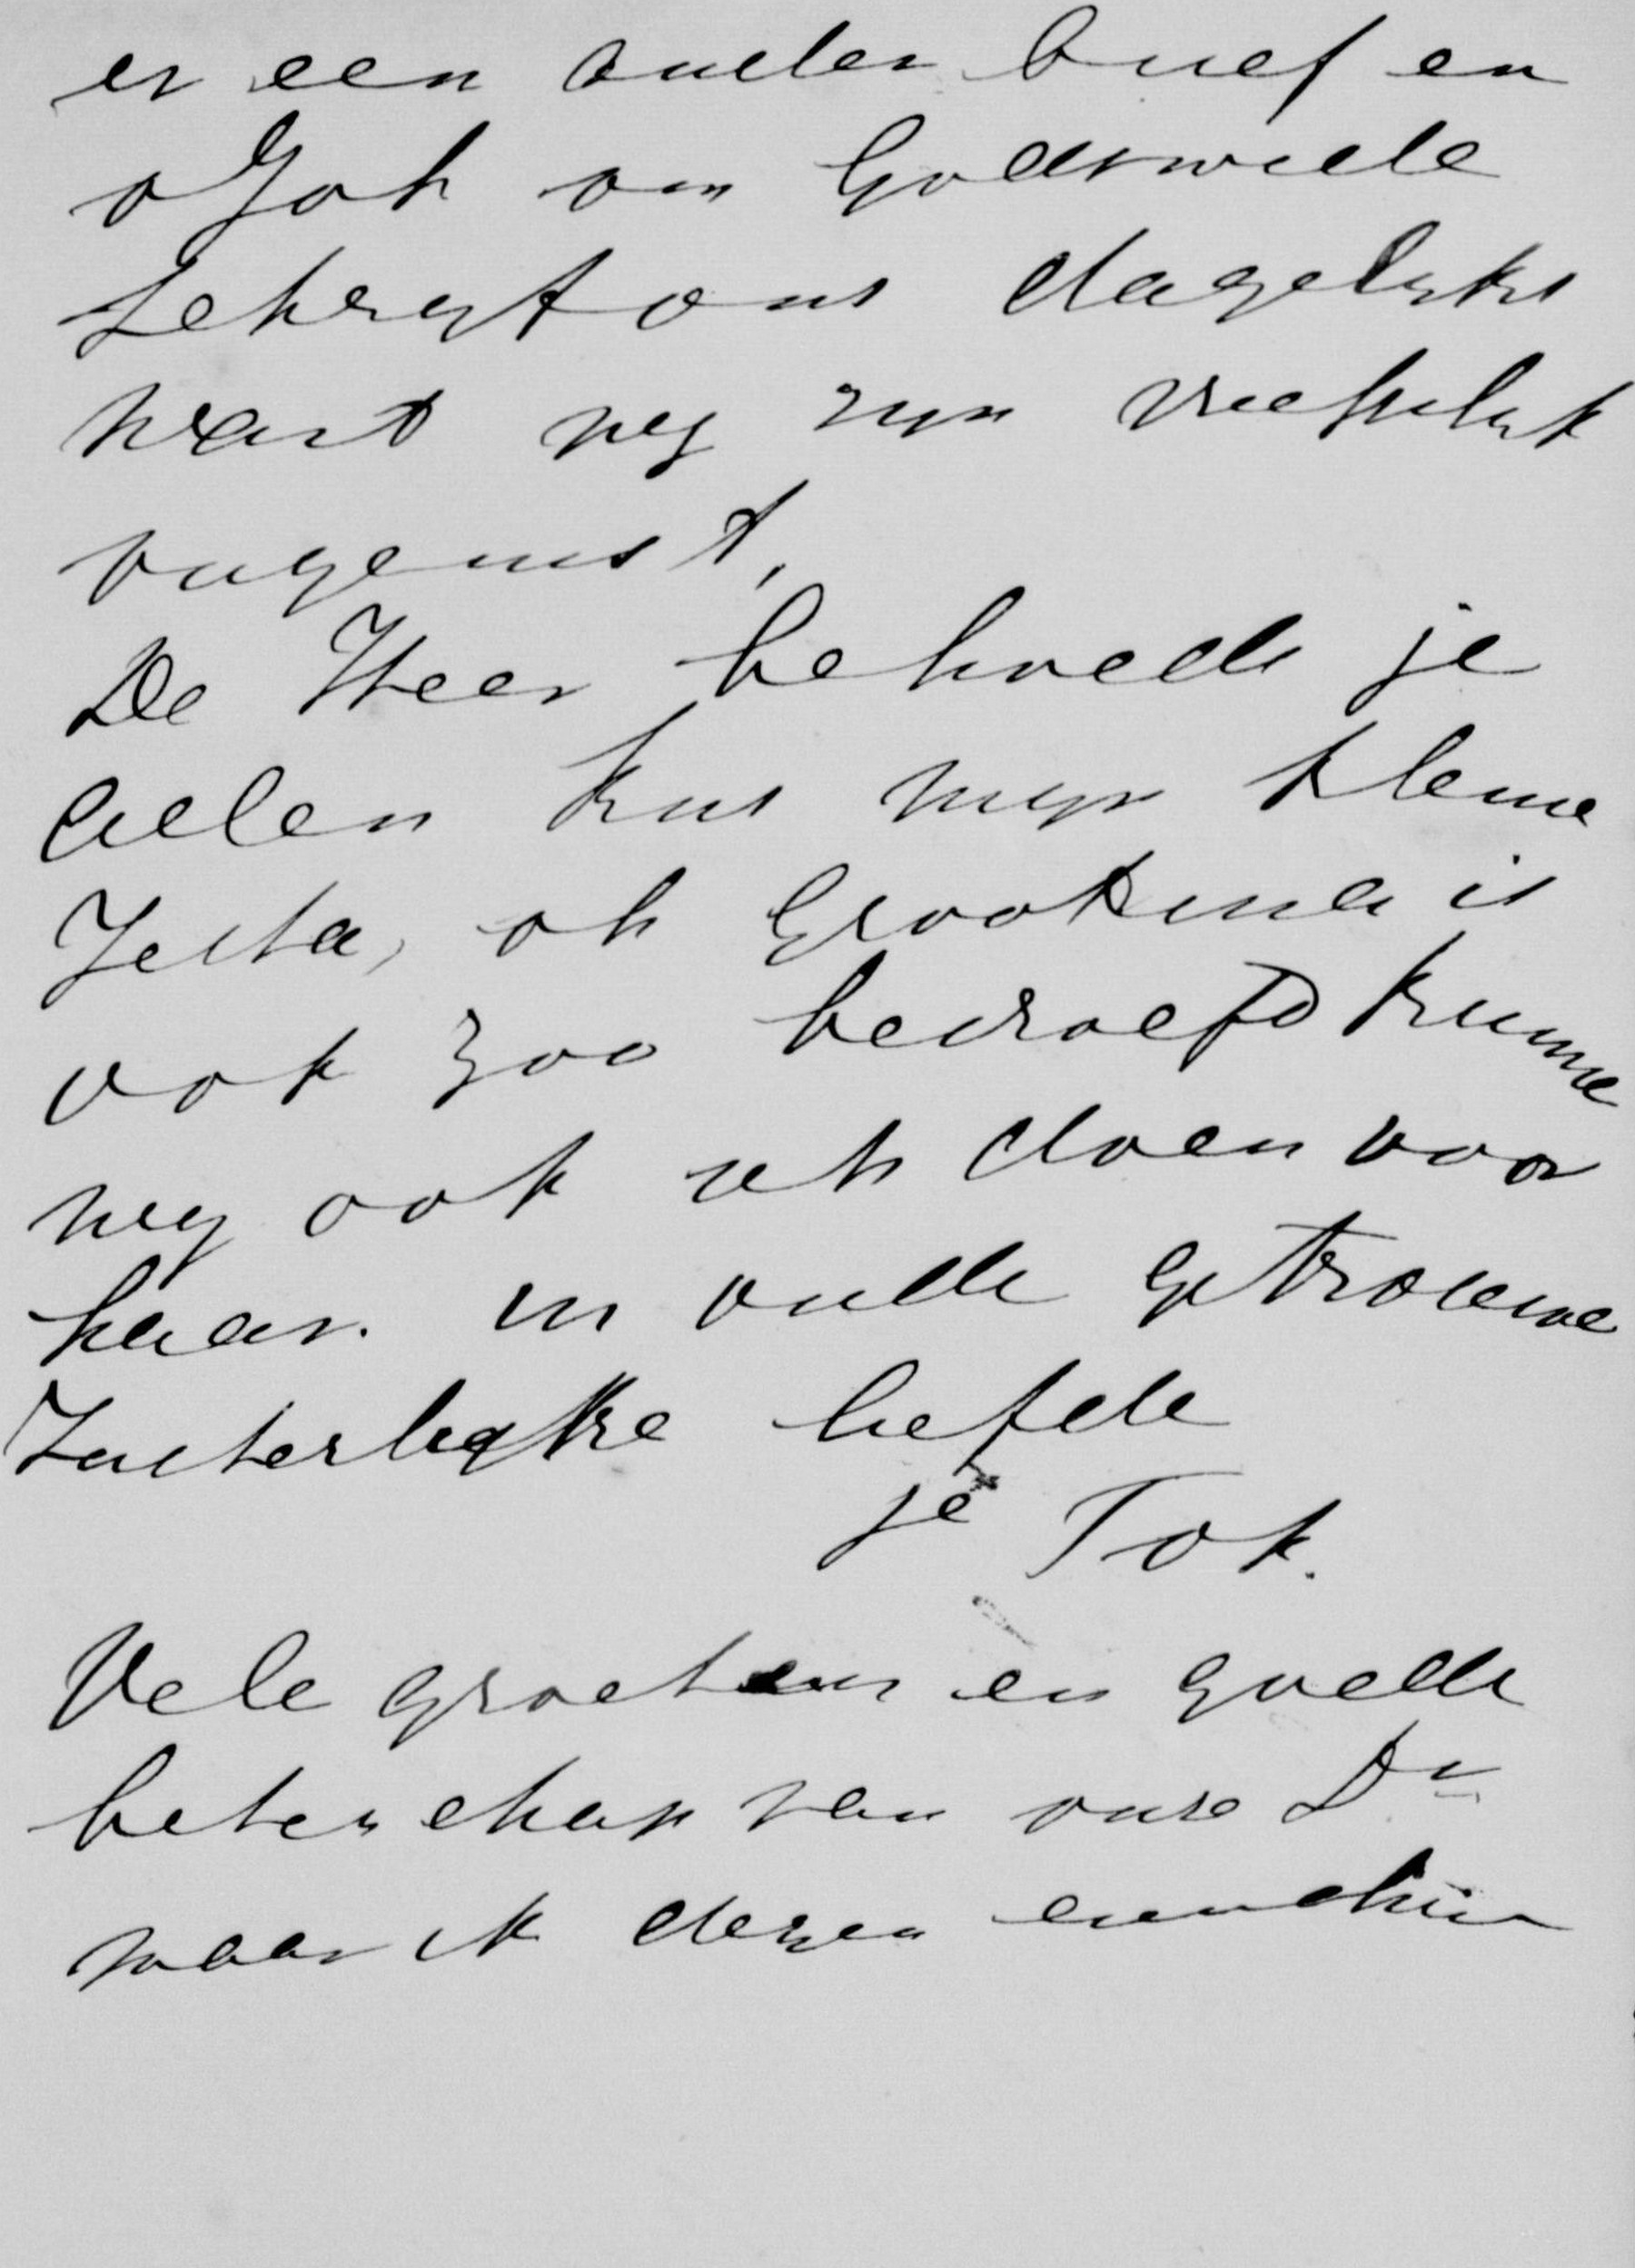 er een ander brief en
o Joh om Godswille
schryf ons dagelyks
want wy zyn vreeselyk
ongerust,
De Heer behoede je
allen kus myn kleine
Jetta, oh Grootma is
ook zoo bedroefd kunne
wy ook iets doen voor
haar. in oude getrouwe
Zusterlyke liefde
je Tok.
Vele groeten en goede
beterschap van onze Dr
waar ik dezen